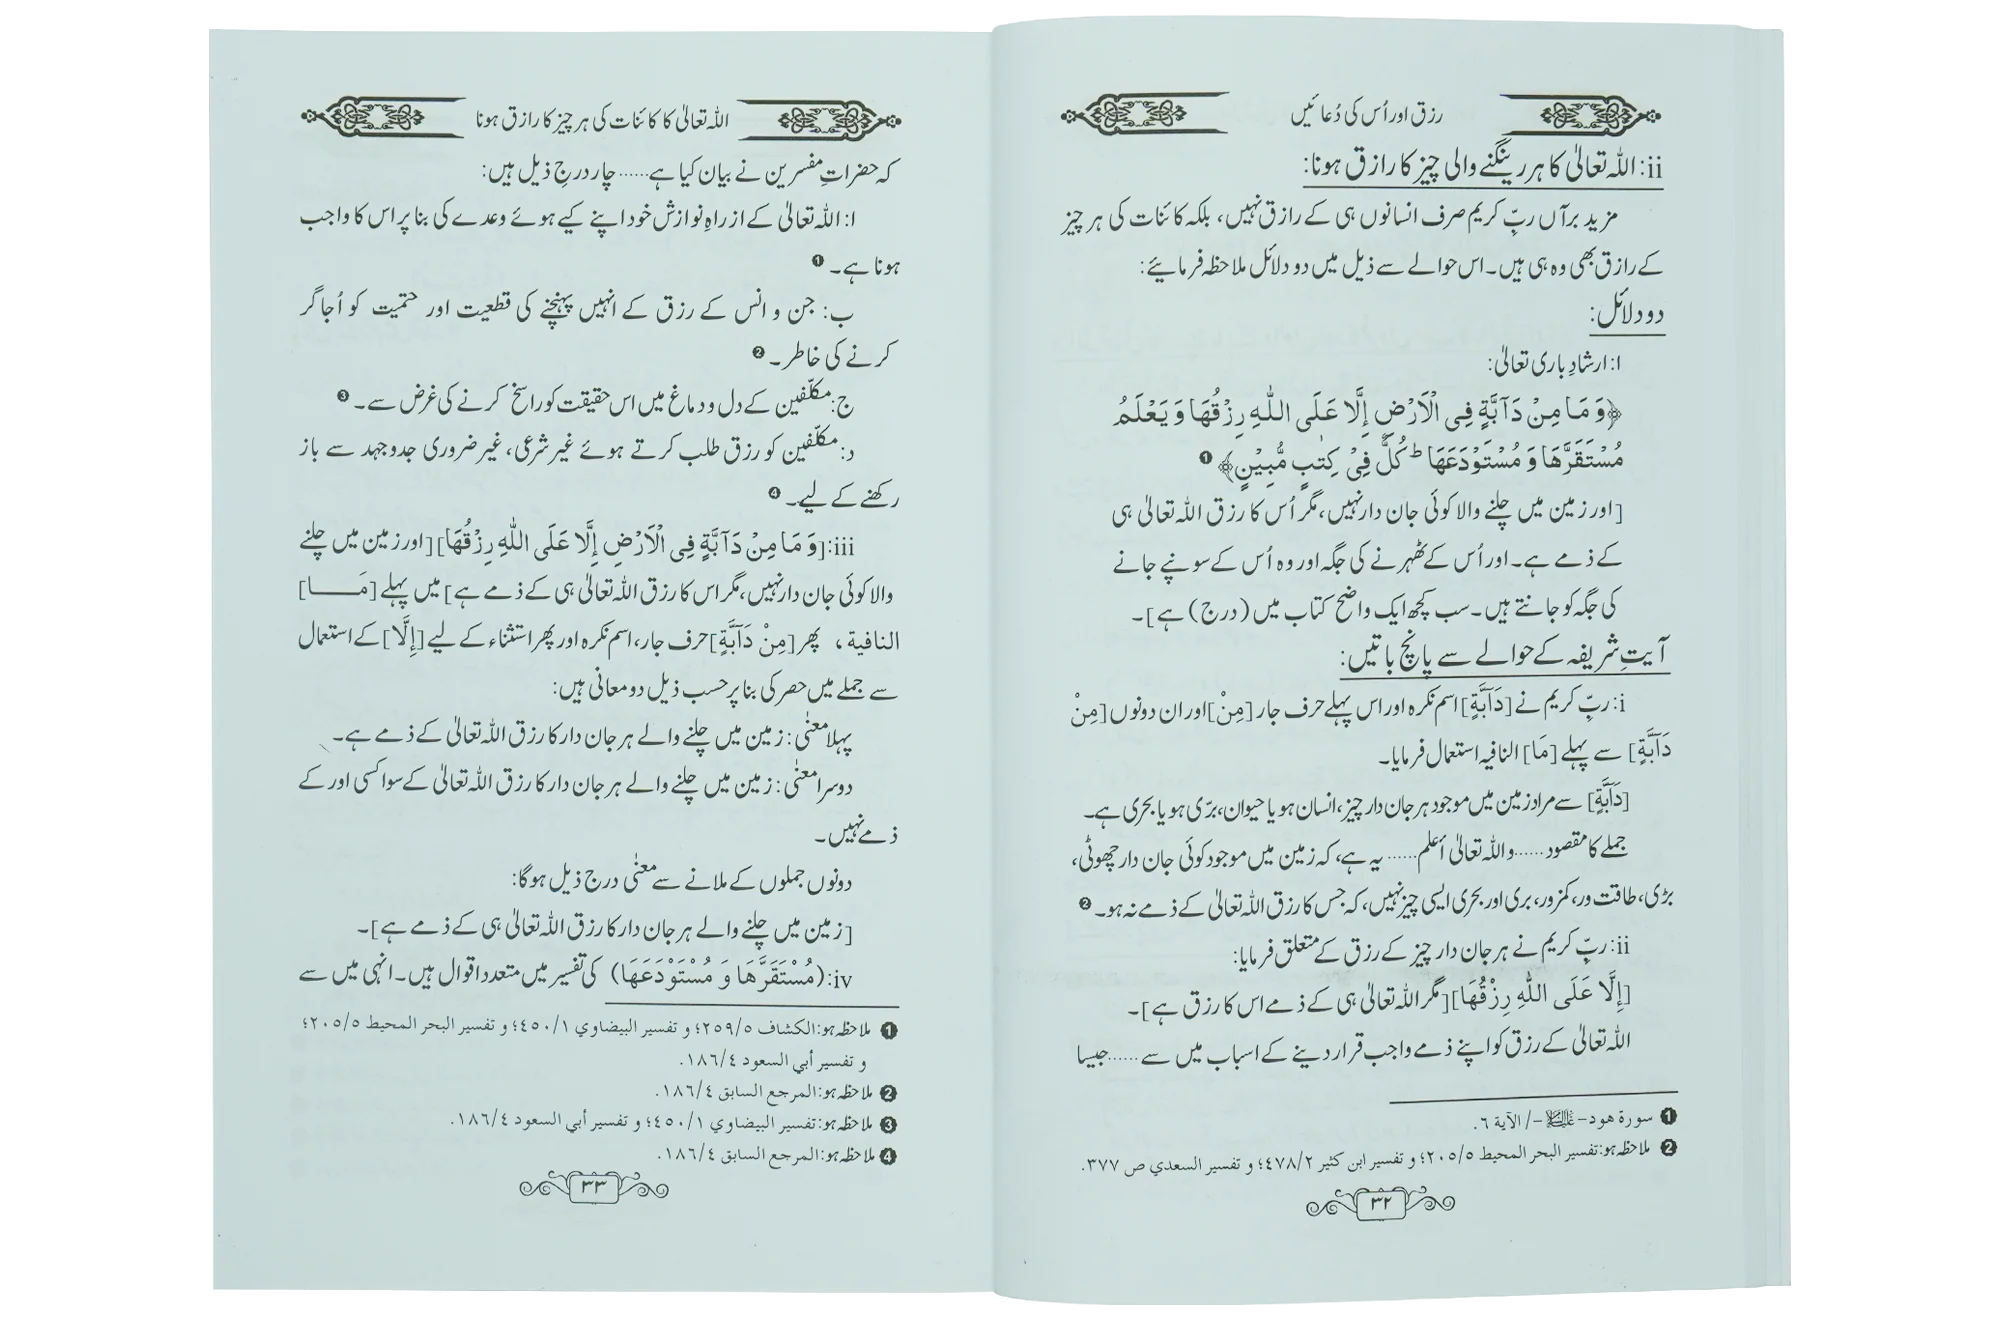 رزق اور اُس کی دُعائیں
ii: اللہ تعالیٰ کا ہر رینگنے والی چیز کا رازق ہونا:
مزید برآں ربِّ کریم صرف انسانوں ہی کے رازق نہیں، بلکہ کائنات کی ہر چیز
کے رازق بھی وہ ہی ہیں۔ اس حوالے سے ذیل میں دو دلائل ملاحظہ فرمائیے:
دو دلائل:
ا: ارشادِ باری تعالیٰ:
﴿وَ مَا مِنْ دَآبَّةٍ فِی الْاَرْضِ اِلَّا عَلَی اللّٰهِ رِزْقُهَا وَ یَعْلَمُ
مُسْتَقَرَّهَا وَ مُسْتَوْدَعَهَا ؕ كُلٌّ فِیْ كِتٰبٍ مُّبِیْنٍ﴾ ❶
[اور زمین میں چلنے والا کوئی جان دار نہیں، مگر اُس کا رزق اللہ تعالیٰ ہی
کے ذمے ہے۔ اور اُس کے ٹھہرنے کی جگہ اور وہ اُس کے سونپے جانے
کی جگہ کو جانتے ہیں۔ سب کچھ ایک واضح کتاب میں (درج) ہے]۔
آیتِ شریفہ کے حوالے سے پانچ باتیں:
i: ربِّ کریم نے [دَآبَّةٍ] اسم نکرہ اور اس پہلے حرف جار [مِنْ] اور ان دونوں [مِنْ
دَآبَّةٍ] سے پہلے [مَا] النافیہ استعمال فرمایا۔
[دَآبَّةٍ] سے مراد زمین میں موجود ہر جان دار چیز، انسان ہو یا حیوان، برّی ہو یا بحری ہے۔
جملے کا مقصود ...... و اللہ تعالیٰ أعلم ...... یہ ہے، کہ زمین میں موجود کوئی جان دار چھوٹی،
بڑی، طاقت ور، کمزور، بری اور بحری ایسی چیز نہیں، کہ جس کا رزق اللہ تعالیٰ کے ذمے نہ ہو۔ ❷
ii: ربِّ کریم نے ہر جان دار چیز کے رزق کے متعلق فرمایا:
[إِلَّا عَلَی اللّٰهِ رِزْقُهَا] [مگر اللہ تعالیٰ ہی کے ذمے اس کا رزق ہے]۔
اللہ تعالیٰ کے رزق کو اپنے ذمے واجب قرار دینے کے اسباب میں سے ...... جیسا
❶ سورة هود - علیہ السلام -/ الآیة ٦.
❷ ملاحظہ ہو: تفسیر البحر المحیط ٢٠٥/٥؛ و تفسیر ابن کثیر ٤٧٨/٢؛ و تفسیر السعدي ص ٣٧٧.
٣٢
اللہ تعالیٰ کا کائنات کی ہر چیز کا رازق ہونا
کہ حضراتِ مفسرین نے بیان کیا ہے ...... چار درجِ ذیل ہیں:
ا: اللہ تعالیٰ کے از راہِ نوازش خود اپنے کیے ہوئے وعدے کی بنا پر اس کا واجب
ہونا ہے۔ ❶
ب: جن و انس کے رزق کے انہیں پہنچنے کی قطعیت اور حتمیت کو اُجاگر
کرنے کی خاطر۔ ❷
ج: مکلّفین کے دل و دماغ میں اس حقیقت کو راسخ کرنے کی غرض سے۔ ❸
د: مکلّفین کو رزق طلب کرتے ہوئے غیر شرعی، غیر ضروری جدوجہد سے باز
رکھنے کے لیے۔ ❹
iii: [وَ مَا مِنْ دَآبَّةٍ فِی الْاَرْضِ إِلَّا عَلَی اللّٰهِ رِزْقُهَا] [اور زمین میں چلنے
والا کوئی جان دار نہیں، مگر اس کا رزق اللہ تعالیٰ ہی کے ذمے ہے] میں پہلے [مَـــا]
النافیة، پھر [مِنْ دَآبَّةٍ] حرف جار، اسم نکرہ اور پھر استثناء کے لیے [إِلَّا] کے استعمال
سے جملے میں حصر کی بنا پر حسب ذیل دو معانی ہیں:
پہلا معنٰی: زمین میں چلنے والے ہر جان دار کا رزق اللہ تعالیٰ کے ذمے ہے۔
دوسرا معنٰی: زمین میں چلنے والے ہر جان دار کا رزق اللہ تعالیٰ کے سوا کسی اور کے
ذمے نہیں۔
دونوں جملوں کے ملانے سے معنٰی درج ذیل ہوگا:
[زمین میں چلنے والے ہر جان دار کا رزق اللہ تعالیٰ ہی کے ذمے ہے]۔
iv: (مُسْتَقَرَّهَا وَ مُسْتَوْدَعَهَا) کی تفسیر میں متعدد اقوال ہیں۔ انہی میں سے
❶ ملاحظہ ہو: الکشاف ٢٥٩/٥؛ و تفسیر البیضاوي ٤٥٠/١؛ و تفسیر البحر المحیط ٢٠٥/٥؛
و تفسیر أبي السعود ١٨٦/٤.
❷ ملاحظہ ہو: المرجع السابق ١٨٦/٤.
❸ ملاحظہ ہو: تفسیر البیضاوي ٤٥٠/١؛ و تفسیر أبي السعود ١٨٦/٤.
❹ ملاحظہ ہو: المرجع السابق ١٨٦/٤.
٣٣